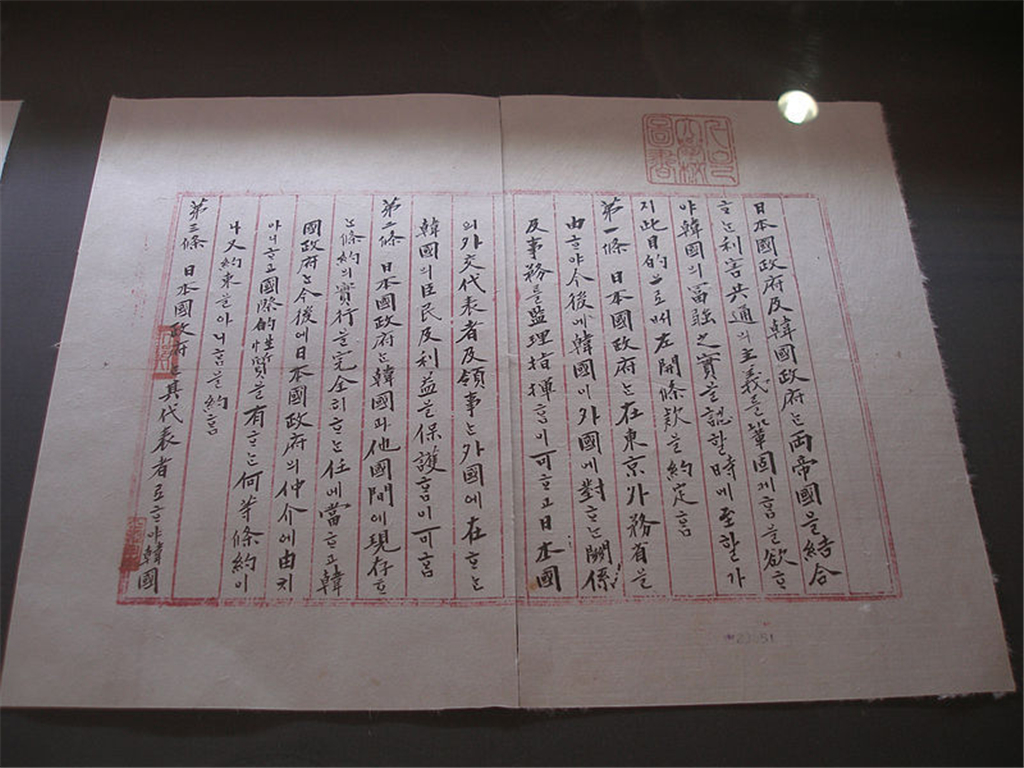 日本國政府及韓國政府는両帝國을結合
ᄒᆞ는利害共通의主義를鞏固케ᄒᆞᆷ을欲ᄒᆞ
야韓國의冨強之實을認ᄒᆞᆯ時에至ᄒᆞᆯ가
지此目的으로써左開條款을約定ᄒᆞᆷ
第一條 日本國政府는在東京外務省을
由ᄒᆞ야今後에韓國이外國에對ᄒᆞ는關係
及事務를監理指揮ᄒᆞᆷ이可ᄒᆞ고日本國
의外交代表者及領事는外國에在ᄒᆞ는
韓國의臣民及利益을保護ᄒᆞᆷ이可ᄒᆞᆷ
第二條 日本國政府는韓國과他國間에現存ᄒᆞ
는條約의實行을完全히ᄒᆞ는任에當ᄒᆞ고韓
國政府는今後에日本國政府의仲介에由치
아니ᄒᆞ고國際的性質을有ᄒᆞ는何等條約이
나又約束을아니ᄒᆞᆷ을約ᄒᆞᆷ
第三條 日本國政府는其代表者로ᄒᆞ야韓國